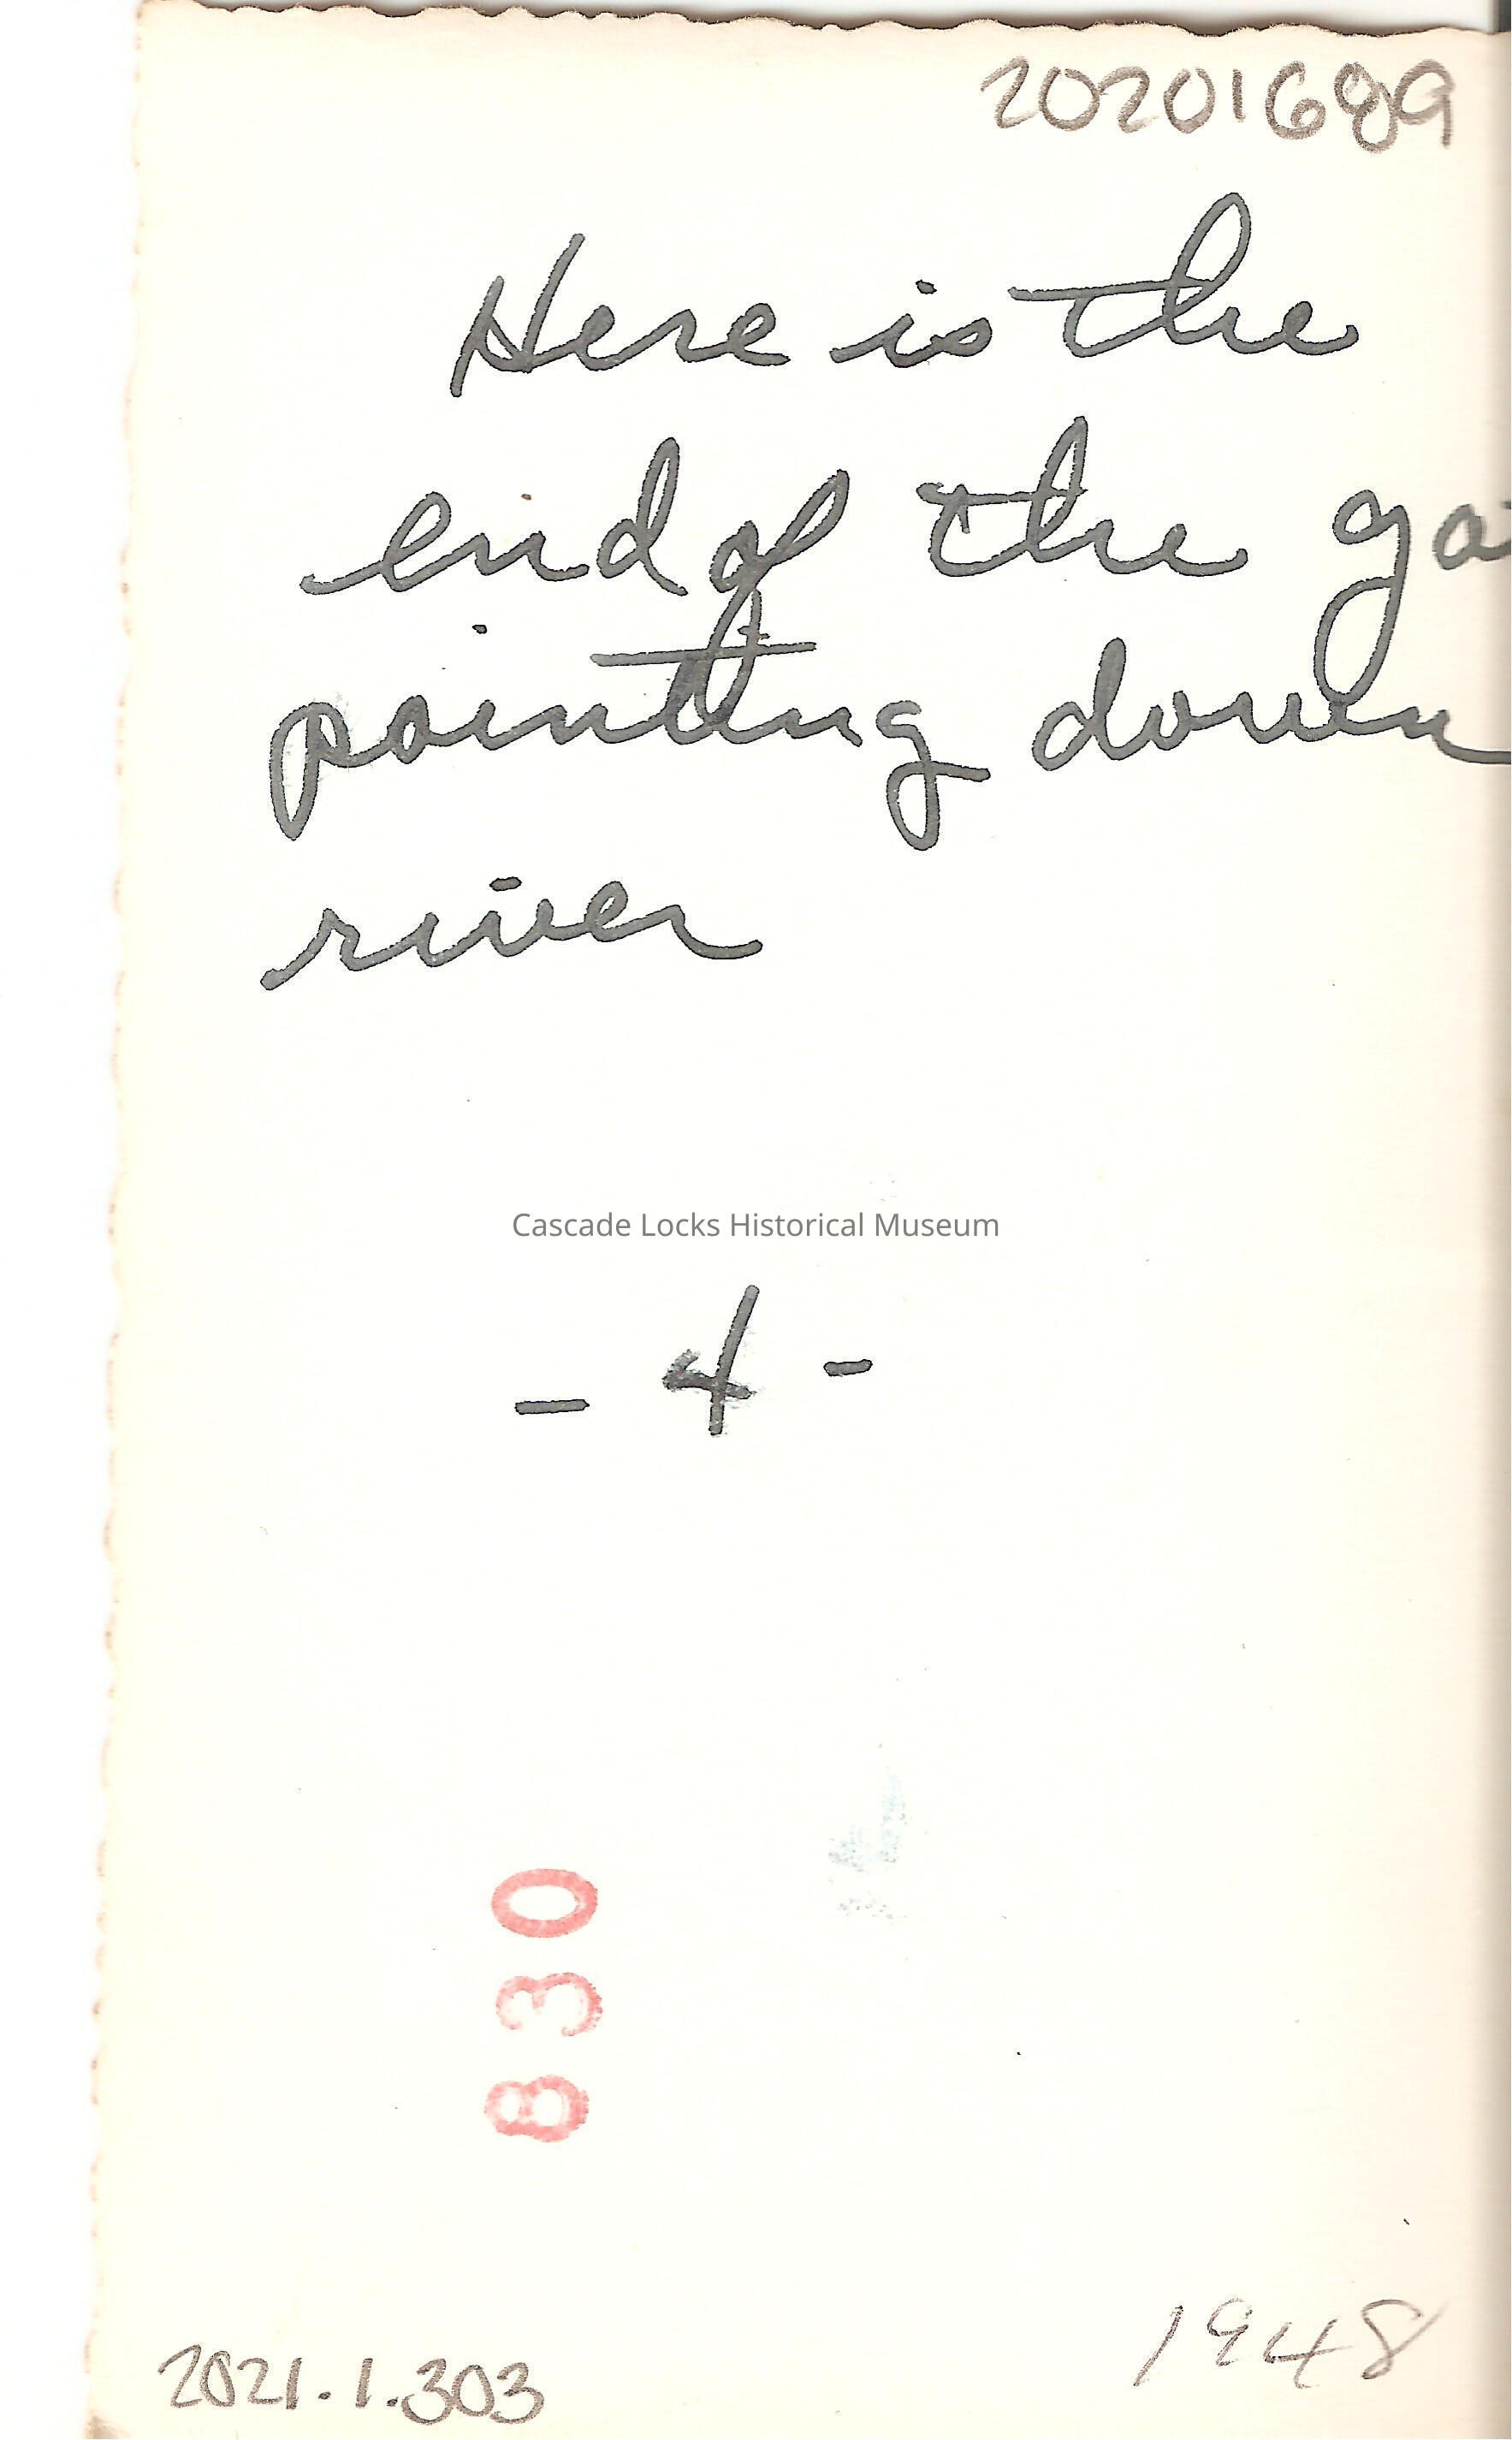 20201689
Here is the
end of the ga
pointing down
river
Cascade Locks Historical Museum
- 4 -
830
1948
2021.1.303